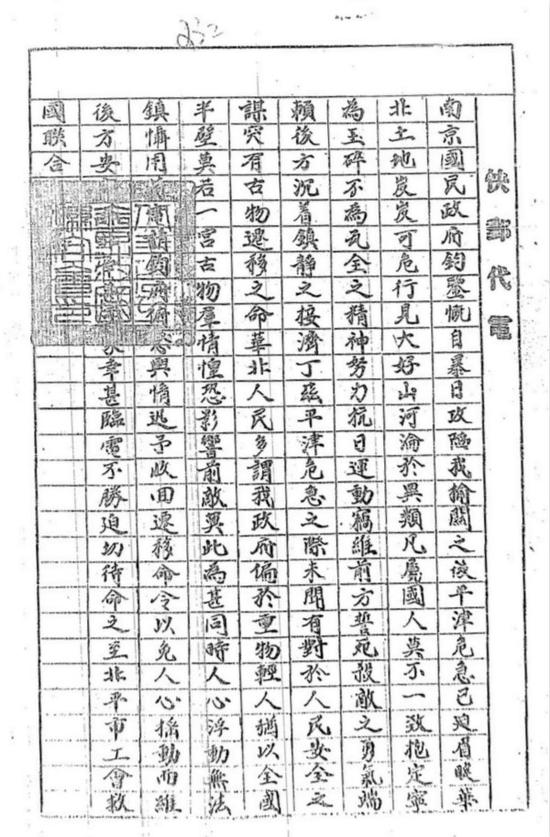 快郵代電
南京國民政府鈞鑒慨自暴日攻陷我榆關之後平津危急已迫眉睫華
北土地岌岌可危行見大好山河淪於異類凡屬國人莫不一致抱定寧
為玉碎不為瓦全之精神努力抗日運動竊維前方誓死殺敵之勇氣端
賴後方沉着鎮靜之接濟丁茲平津危急之際未聞有對於人民安全之
謀突有古物遷移之命華北人民多謂我政府偏於重物輕人猶以全國
半壁莫若一宮古物羣情惶恐影響前敵異此為甚同時人心浮動無法
鎮懾用電請鈞府俯念輿情迅予收回遷移命令以免人心搖動而維
後方安幸甚臨電不勝迫切待命之至北平市工會救
國聯合